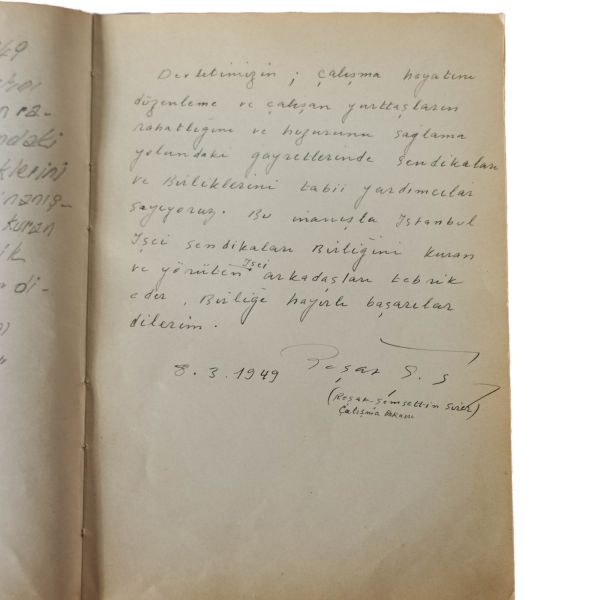 49
ra-
ndaki
klerini
inanış-
kuran
ik
di-
Devletimizin ; çalışma hayatını
düzenleme ve çalışan yurttaşların
rahatlığını ve huzurunu sağlama
yolundaki gayretlerinde Sendikaları
ve Birliklerini tabii yardımcılar
sayıyoruz. Bu inanışla İstanbul
İşçi sendikaları Birliğini kuran
ve yürüten İşçi arkadaşları tebrik
eder, Birliğe hayırlı başarılar
dilerim.
8.3.1949 Reşat Ş. S
(Reşat Şemsettin Sirer)
Çalışma Bakanı